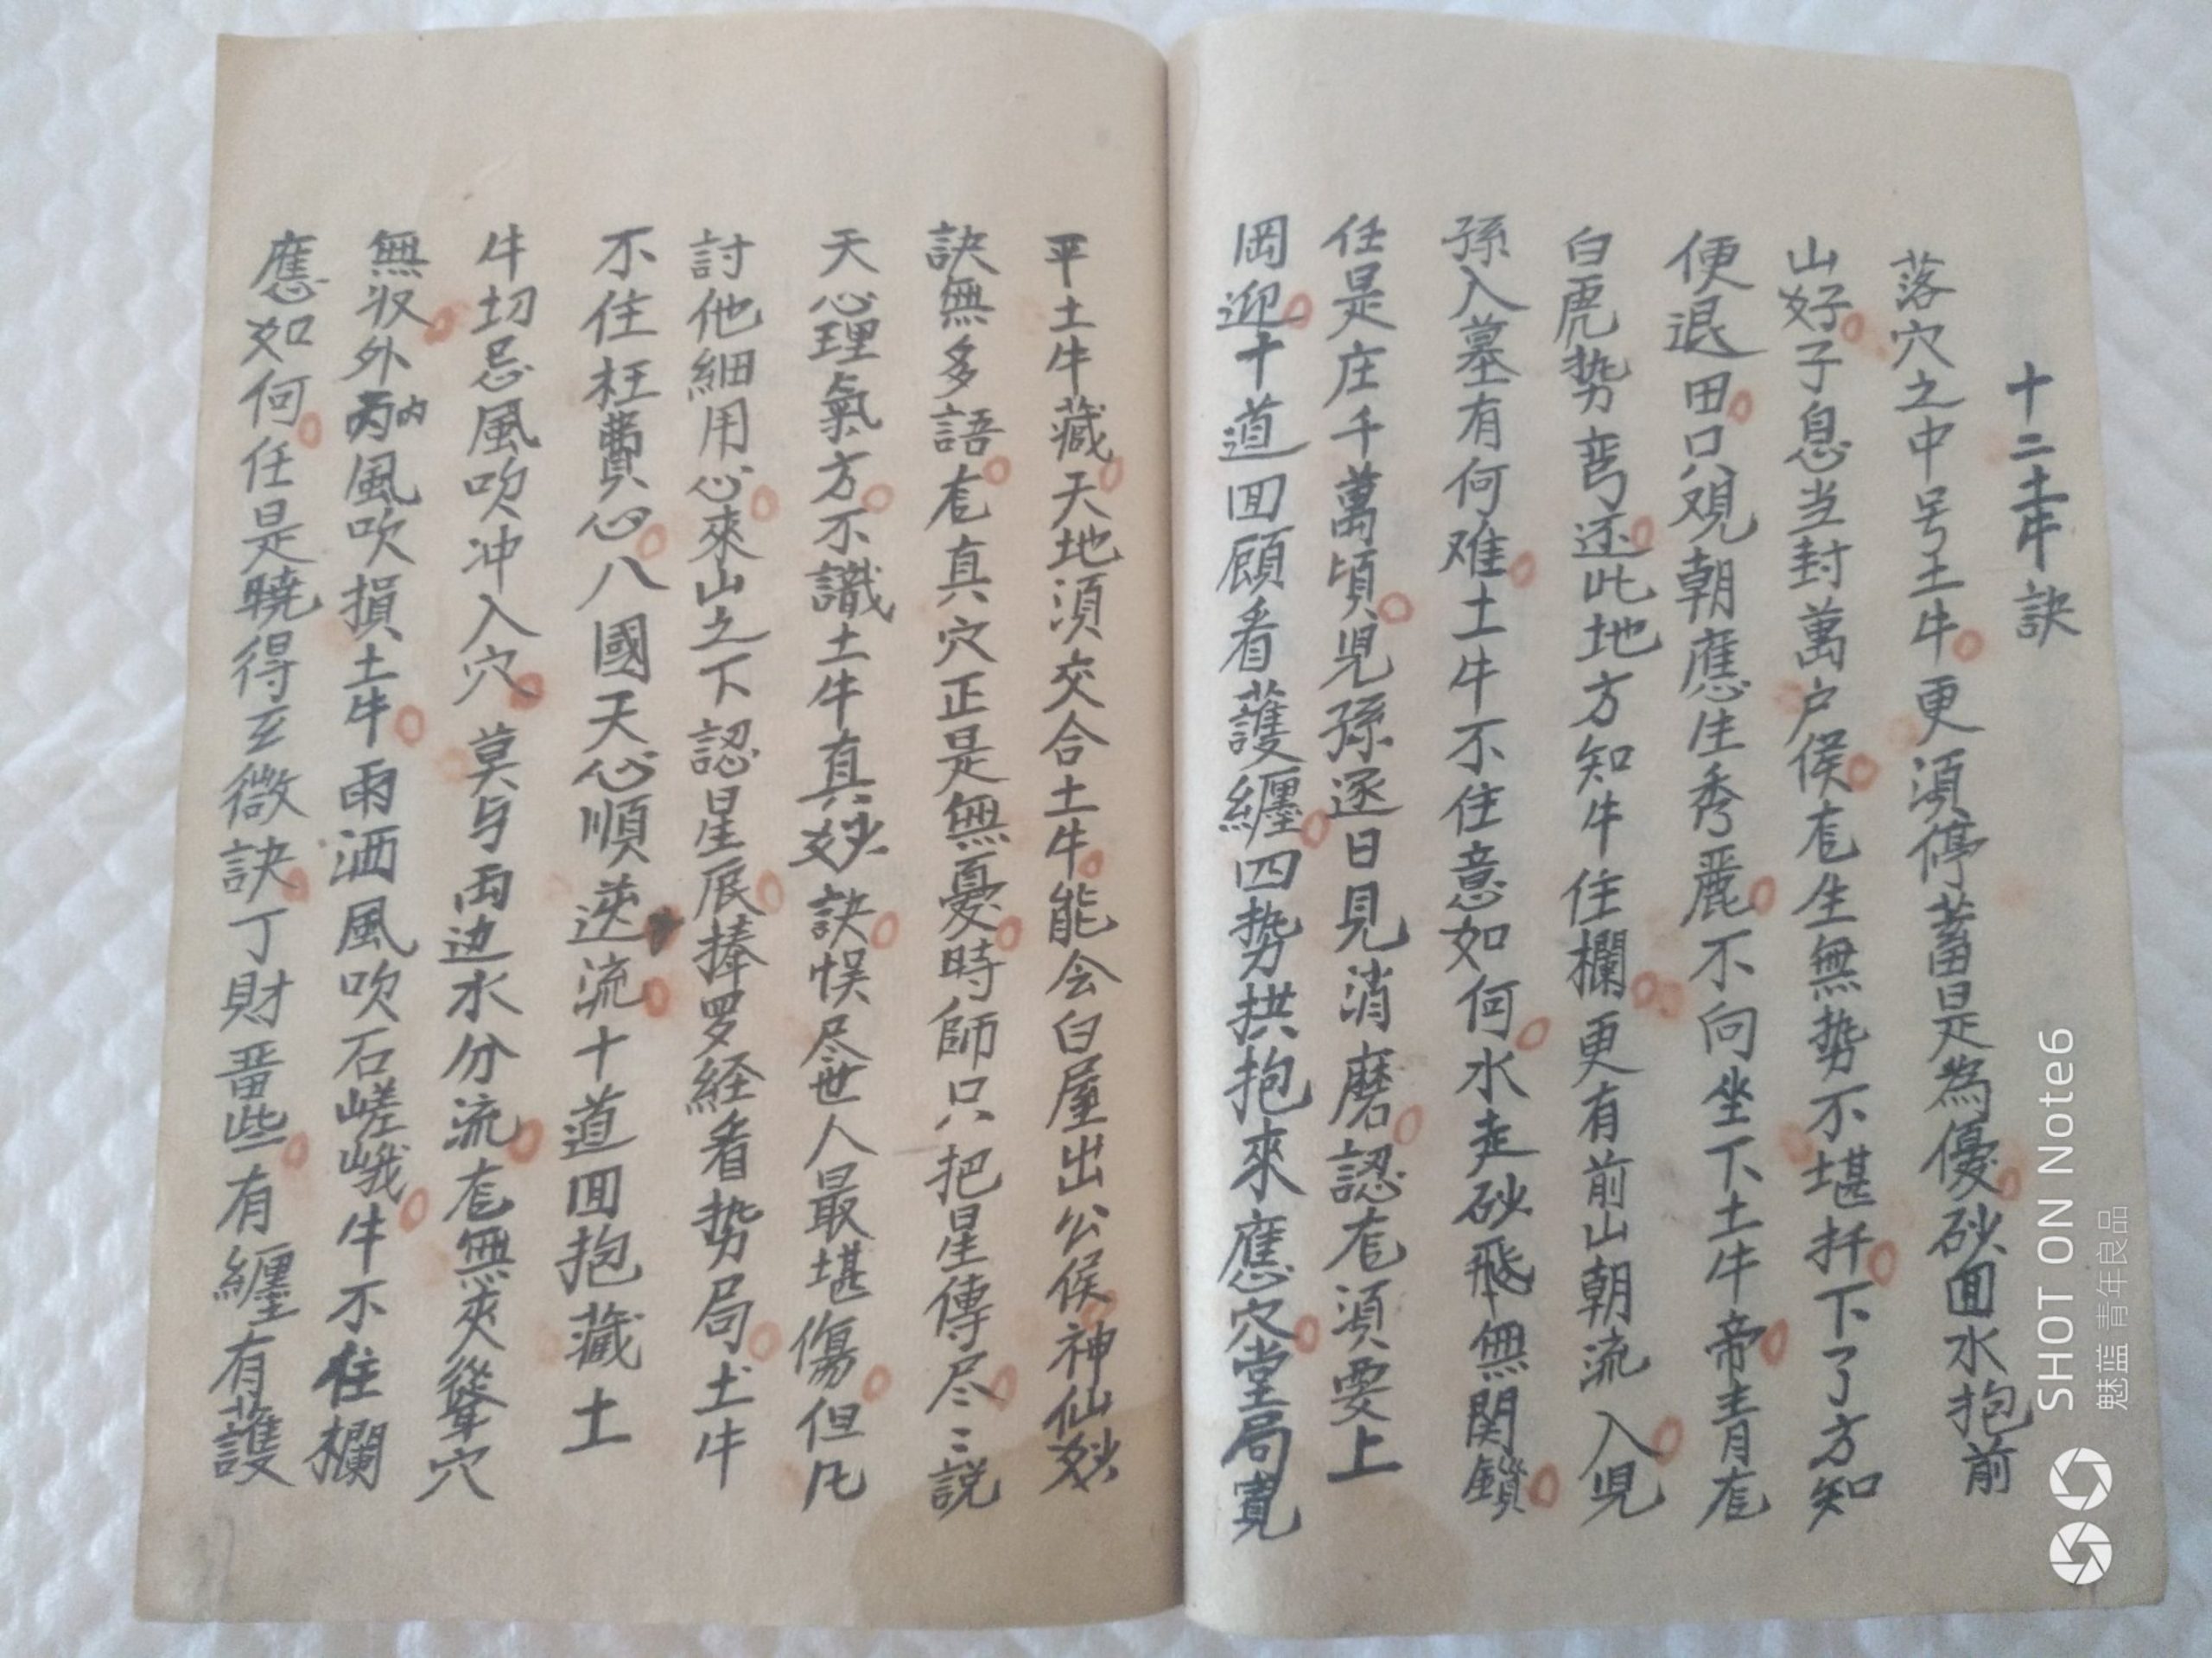 十二土牛訣
落穴之中号土牛更須停蓄是為優砂回水抱前
山好子息当封萬户侯龙生無势不堪扦下了方知
便退田只观朝應生秀麗不向坐下土牛帝青龙
白虎势弯还此地方知牛住欄更有前山朝流入児
孫入墓有何难土牛不住意如何水走砂飛無関鎖
任是庄千萬頃児孫逐日見消磨認龙須要上
岡迎十道回顧看護纏四势拱抱來應穴堂局寬
平土牛藏天地須交合土牛能令白屋出公侯神仙妙
訣無多語龙真穴正是無憂時師只把星傳尽尽説
天心理氣方不識土牛真妙訣悮尽世人最堪傷但凡
討他細用心來山之下認星辰捧罗経看势局土牛
不住枉費心八國天心順逆流十道回抱藏土
牛切忌風吹冲入穴莫与両边水分流龙無夾從穴
無收外内風吹損土牛雨洒風吹石嵯峨牛不住欄
應如何任是曉得玄微訣丁財畨些有纏有護
SHOT ON Note6
魅蓝 青年良品